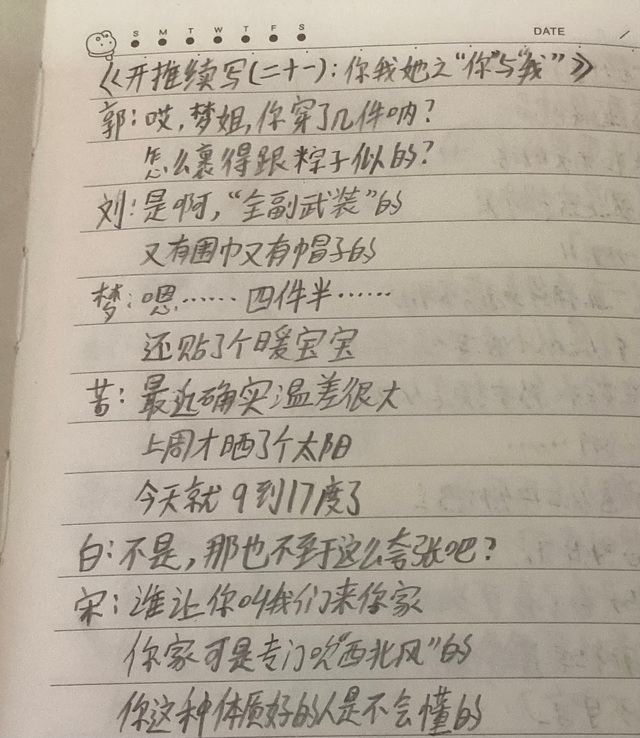 S M T W T F S
DATE /
《开推续写(二十一):你我她之“你”与“我”》
郭:哎,梦姐,你穿了几件呐?
怎么裹得跟粽子似的?
刘:是啊,“全副武装”的
又有围巾又有帽子的
梦:嗯……四件半……
还贴了个暖宝宝
苦:最近确实温差很大
上周才晒了个太阳
今天就9到17度了
白:不是,那也不至于这么夸张吧?
宋:谁让你叫我们来你家
你家可是专门吹“西北风”的
你这种体质好的人是不会懂的